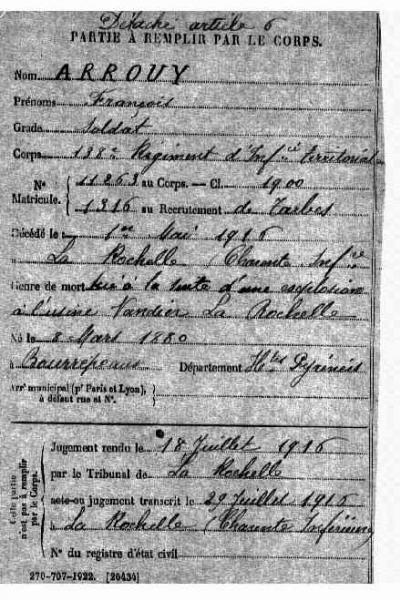 Détaché article 6
PARTIE À REMPLIR PAR LE CORPS.
Nom ARROUY
Prénoms François
Grade Soldat
Corps 138e Régiment d'Infie territoriale
N° Matricule. { 11263 au Corps. — Cl. 1900
1316 au Recrutement de Tarbes
Décédé le 1er Mai 1916
à La Rochelle (Charente Infre
Genre de mort tué à la suite d'une explosion
à l'usine Vandier La Rochelle
Né le 8 Mars 1880
à Bourrepeaux Département Htes Pyrénées
Arrt municipal (pr Paris et Lyon), à défaut rue et N°. }
Cette partie n'est pas à remplir par le Corps.
Jugement rendu le 18 Juillet 1916
par le Tribunal de La Rochelle
acte ou jugement transcrit le 29 Juillet 1916
à La Rochelle (Charente Inférieure)
N° du registre d'état civil
270-707-1922. [26434]